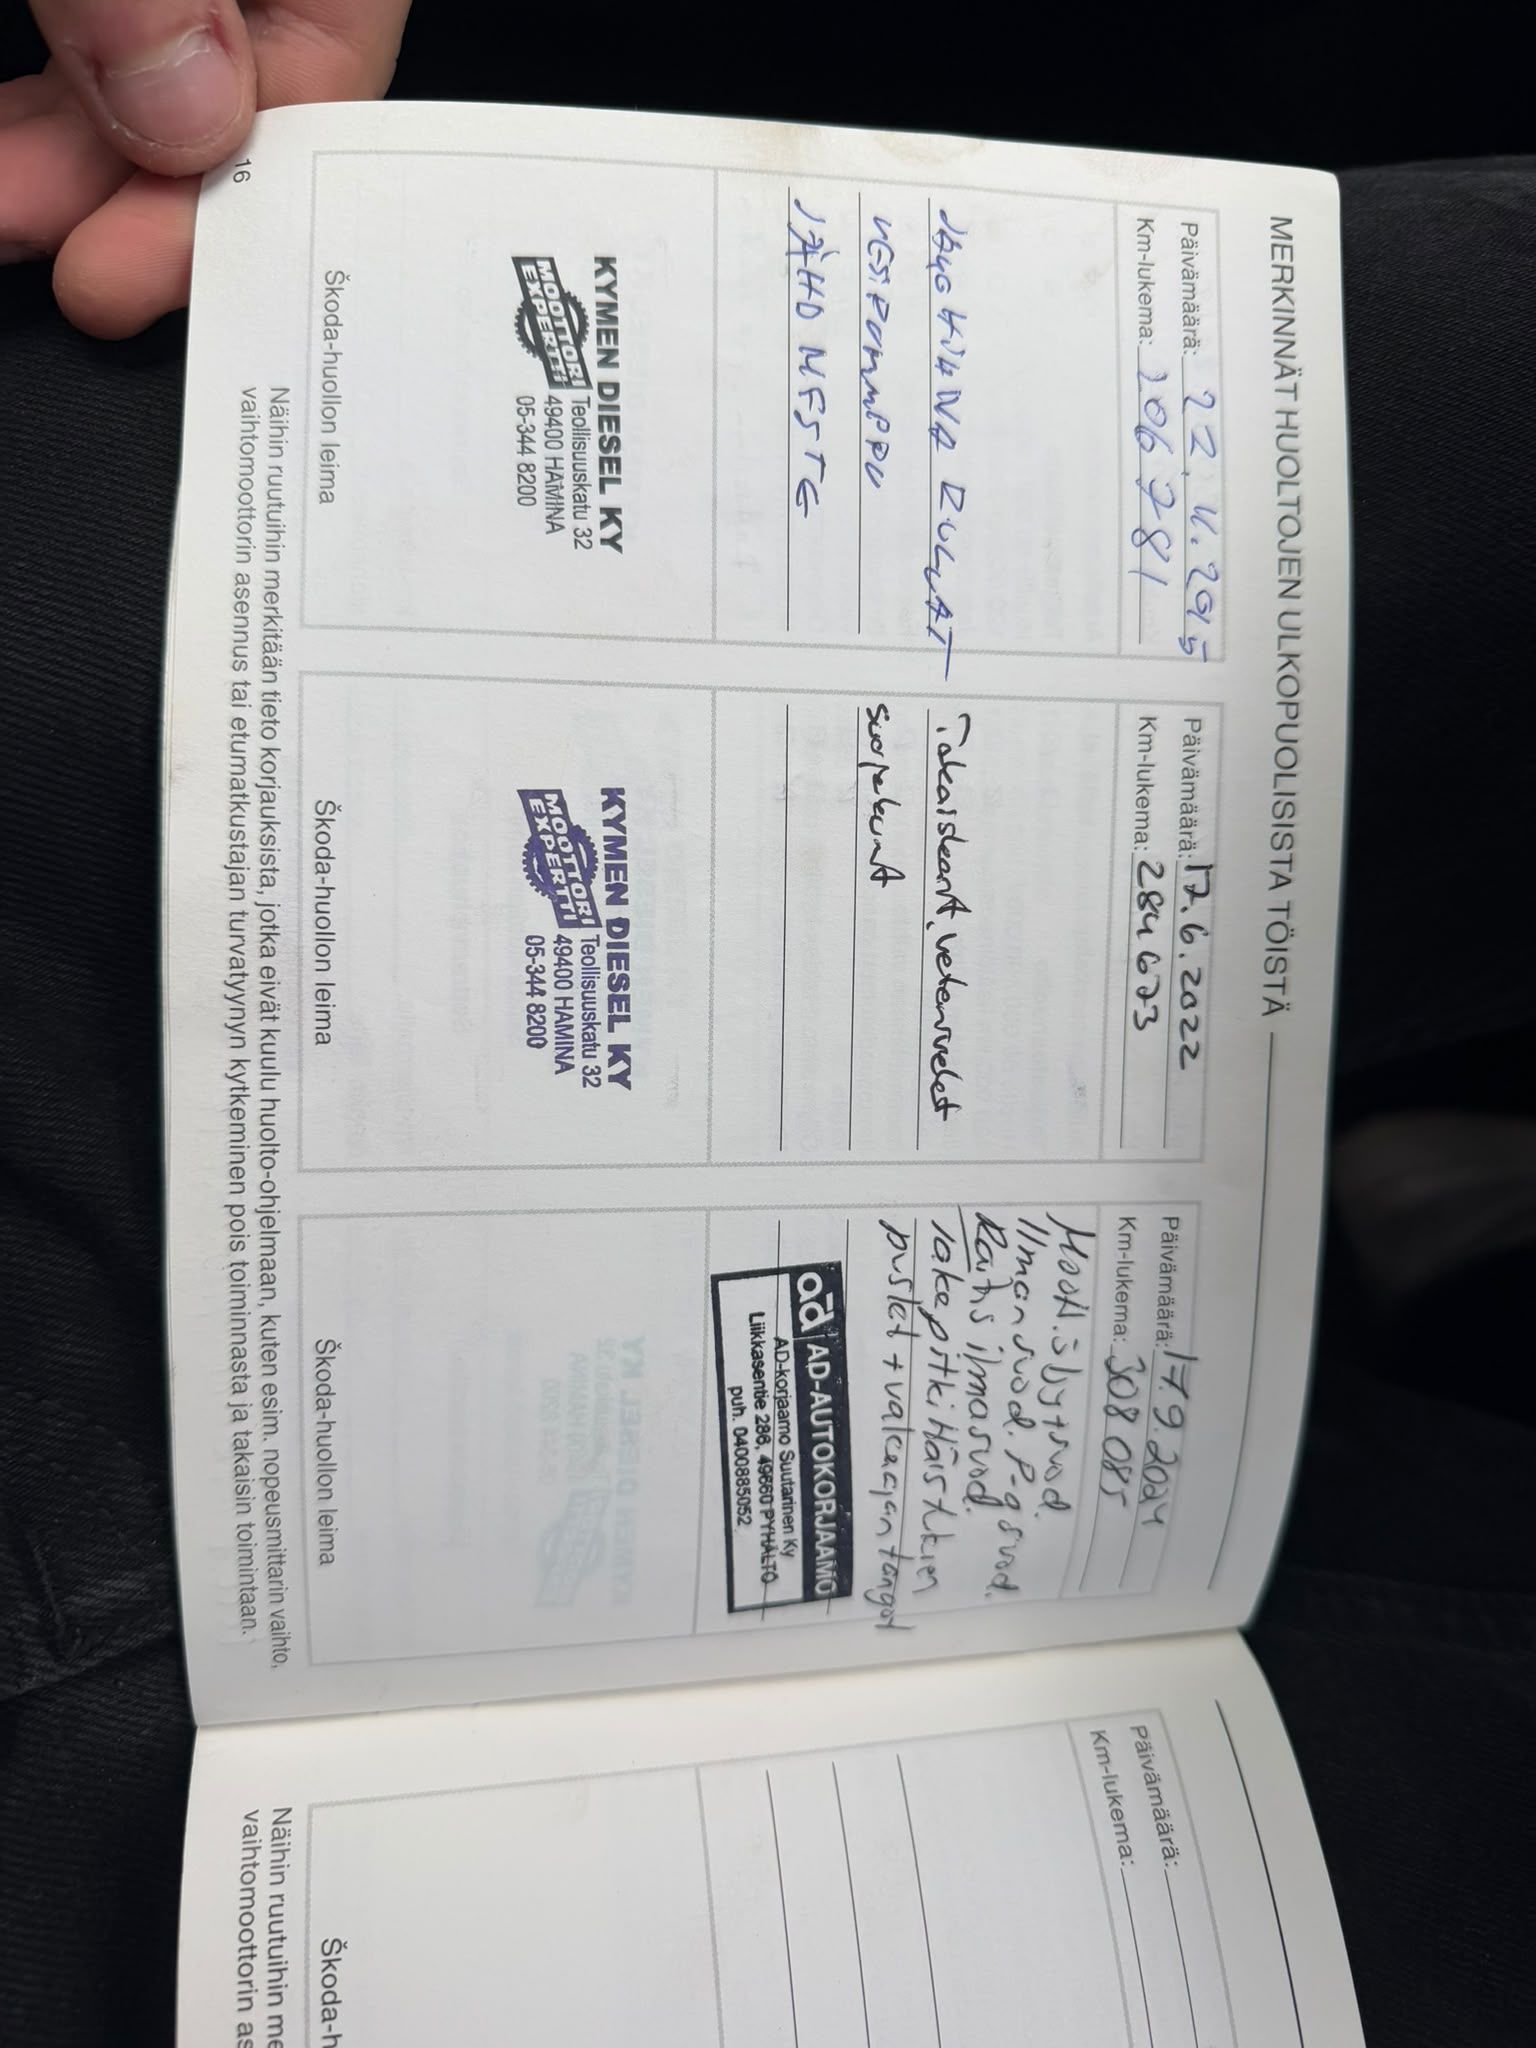 MERKINNÄT HUOLTOJEN ULKOPUOLISISTA TÖISTÄ
Päivämäärä: 22.11.2015
Km-lukema: 206781
JAKOHIHNA RULLAT
VESIPUMPPU
JÄHD NESTE
KYMEN DIESEL KY
MOOTTORI EXPERTTI
Teollisuuskatu 32
49400 HAMINA
05-344 8200
Škoda-huollon leima
Päivämäärä: 17.6.2022
Km-lukema: 284673
Takaiskarit, vetonivelet
suojakumit
KYMEN DIESEL KY
MOOTTORI EXPERTTI
Teollisuuskatu 32
49400 HAMINA
05-344 8200
Škoda-huollon leima
Päivämäärä: 17.9.2024
Km-lukema: 308085
Moott.öljy+suod.
Ilman suod. P-a suod.
Raitis ilmasuod.
Takapitkittäistukien
puslat + vakaajan tangot
ad AD-AUTOKORJAAMO
AD-korjaamo Suutarinen Ky
Liikkasentie 286, 49660 PYHÄLTÖ
puh. 0400885052
Škoda-huollon leima
Näihin ruutuihin merkitään tieto korjauksista, jotka eivät kuulu huolto-ohjelmaan, kuten esim. nopeusmittarin vaihto,
vaihtomoottorin asennus tai etumatkustajan turvatyynyn kytkeminen pois toiminnasta ja takaisin toimintaan.
16
Päivämäärä:
Km-lukema:
Škoda-h
Näihin ruutuihin me
vaihtomoottorin as